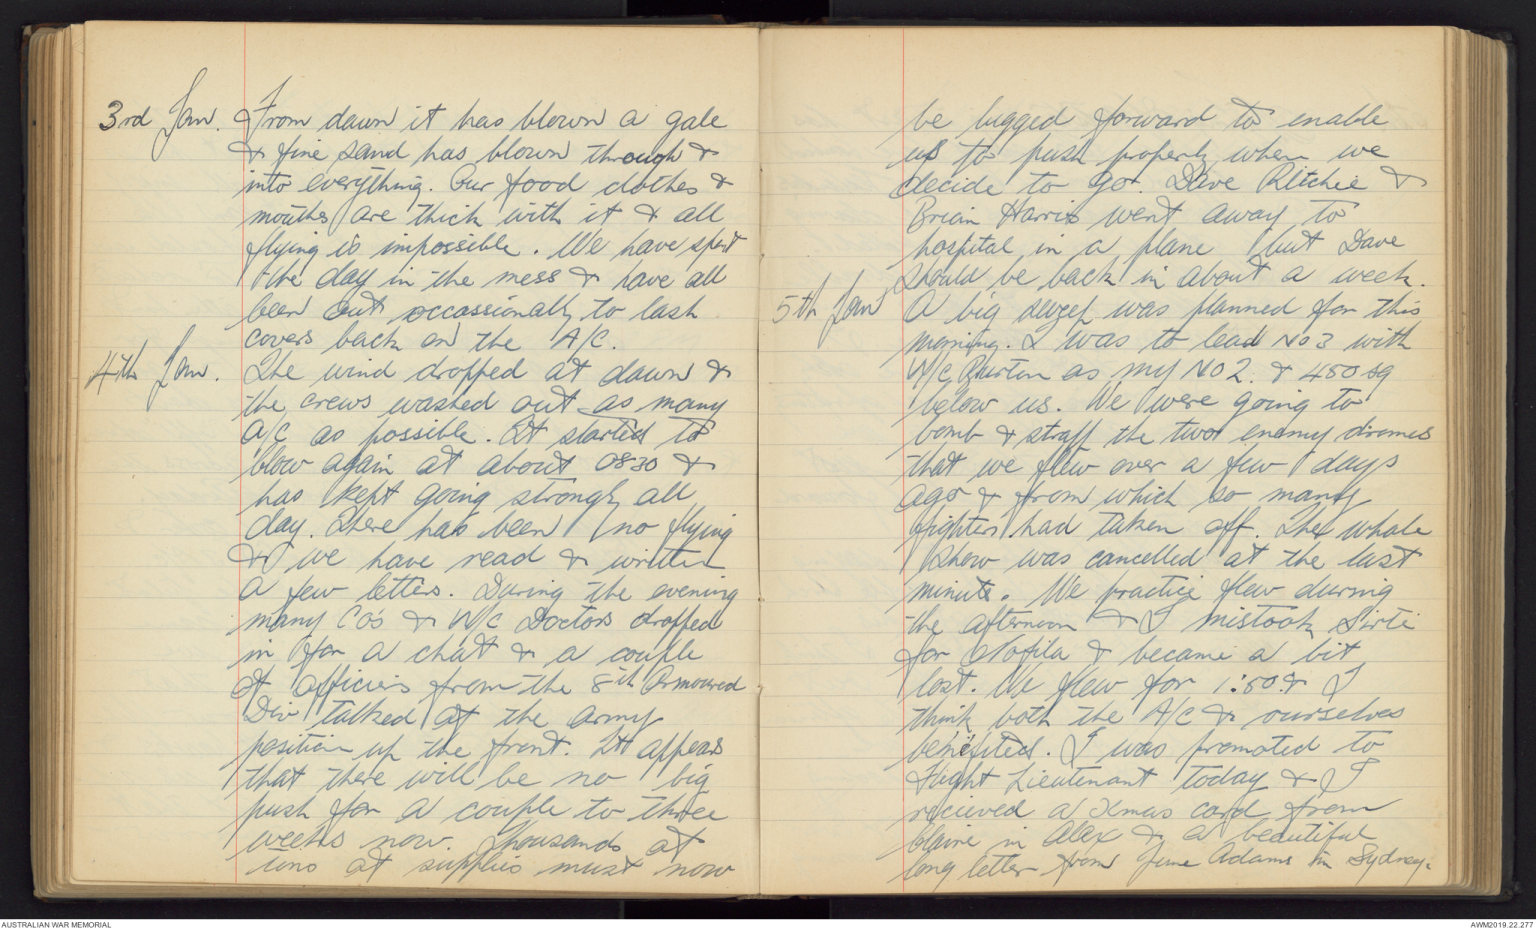 3rd Jan. From dawn it has blown a gale
& fine sand has blown through &
into everything. Our food clothes &
mouths are thick with it & all
flying is impossible. We have spent
the day in the mess & have all
been out occassionally to lash
covers back on the A/C.
4th Jan. The wind dropped at dawn &
the crews washed out as many
A/C as possible. It started to
blow again at about 0830 &
has kept going strongly all
day. There has been no flying
& we have read & written
a few letters. During the evening
many CO's & W/C Doctors dropped
in for a chat & a couple
of officers from the 8th Armoured
Div talked of the army
position up the front. It appears
that there will be no big
push for a couple to three
weeks now. Thousands of
tons of supplies must now
be lugged forward to enable
us to push properly when we
decide to go. Dave Ritchie &
Brian Harris went away to
hospital in a plane but Dave
should be back in about a week.
5th Jan A big sweep was planned for this
morning. I was to lead No 3 with
W/C Burton as my No 2. & 450 sq
below us. We were going to
bomb & straff the two enemy dromes
that we flew over a few days
ago & from which so many
fighters had taken off. The whole
show was cancelled at the last
minute. We practice flew during
the afternoon & I mistook Sirte
for & became a bit
lost. We flew for 1:50 & I
think both the A/C & ourselves
benefited. I was promoted to
Flight Lieutenant today & I
recieved a Xmas card from
Claire in Alex & a beautiful
long letter from June Adams in Sydney.
AUSTRALIAN WAR MEMORIAL
AWM2019.22.277